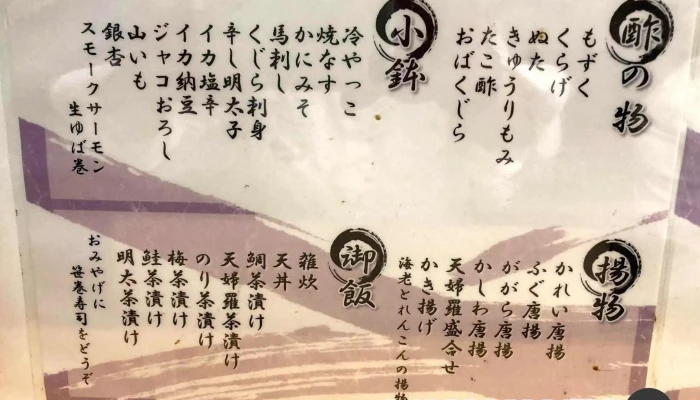 酢の物
もずく
くらげ
ぬた
きゅうりもみ
たこ酢
おばくじら
小鉢
冷やっこ
焼なす
かにみそ
馬刺し
くじら刺身
辛し明太子
イカ塩辛
イカ納豆
ジャコおろし
山いも
銀杏
スモークサーモン
生ゆば巻
揚物
かれい唐揚
ふぐ唐揚
ががら唐揚
かしわ唐揚
天婦羅盛合せ
かき揚げ
海老とれんこんの揚物
御飯
雑炊
天丼
鯛茶漬け
天婦羅茶漬け
のり茶漬け
梅茶漬け
鮭茶漬け
明太茶漬け
おみやげに
笹巻寿司をどうぞ